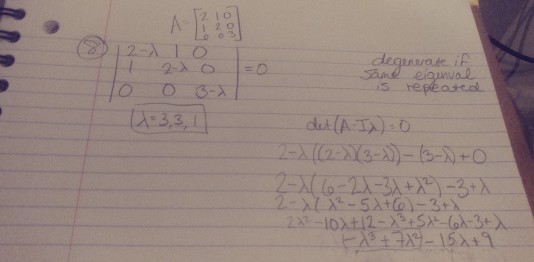 A = [2 1 0
1 2 0
0 0 3]
⑧ |2-λ 1 0
1 2-λ 0
0 0 3-λ| = 0
λ = 3, 3, 1
degenerate if
same eigenval
is repeated
det(A-Iλ) = 0
2-λ((2-λ)(3-λ)) - (3-λ) + 0
2-λ(6-2λ-3λ+λ²) - 3+λ
2-λ(λ²-5λ+6) - 3+λ
2λ²-10λ+12-λ³+5λ²-6λ-3+λ
-λ³+7λ²-15λ+9